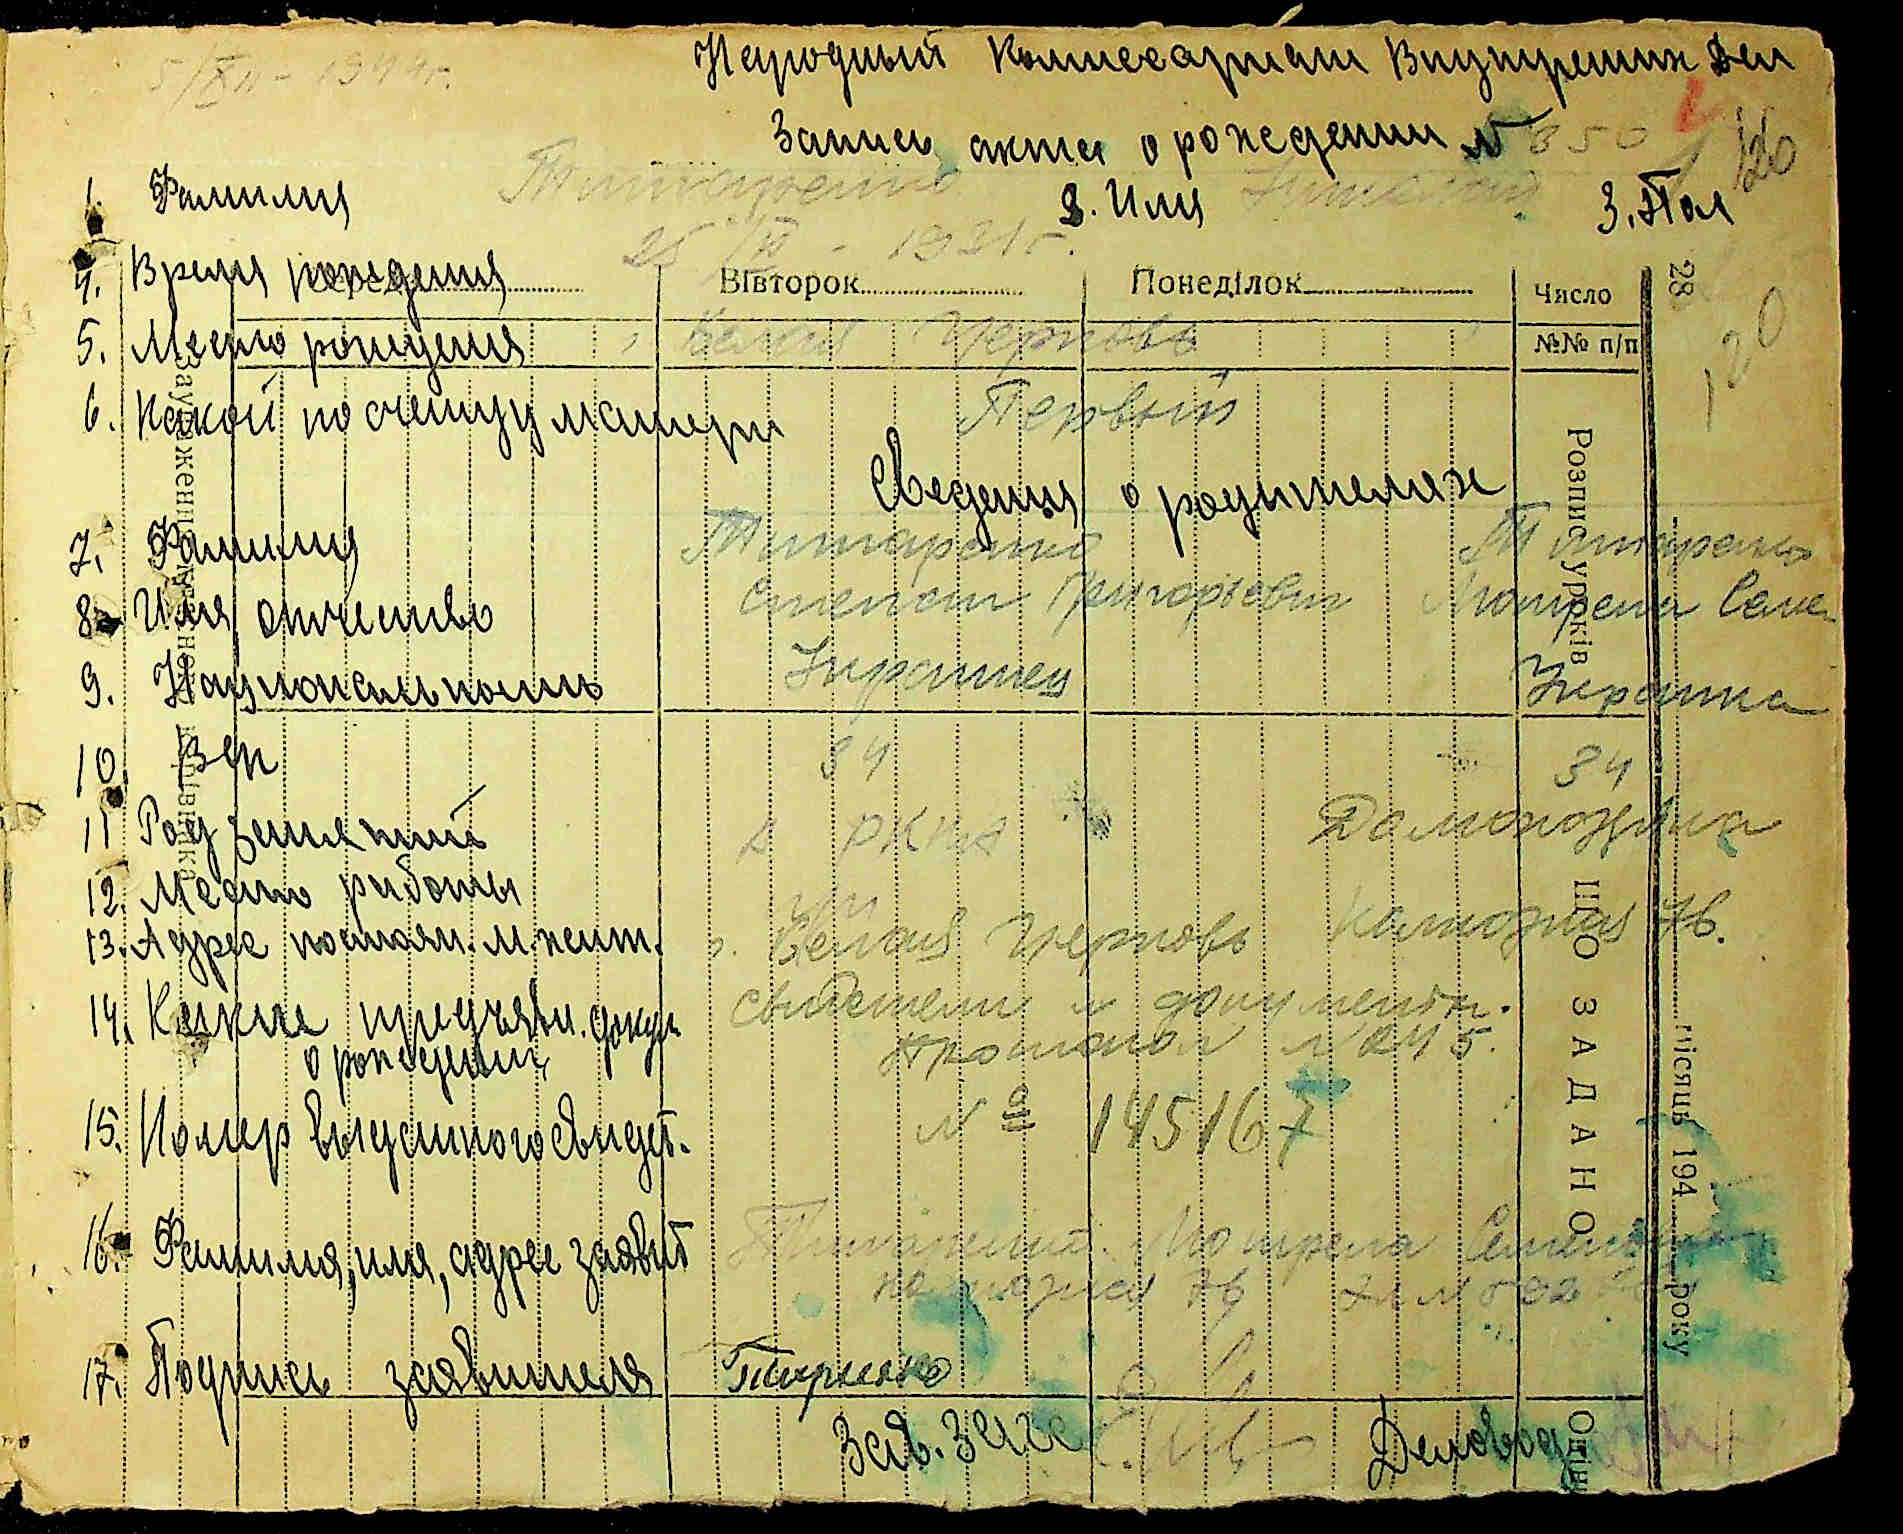 5/XII - 1944г.
Народный Комиссариат Внутрених Дел
Запись акта о рождении № 850
120
1. Фамилия Титаренко 2. Имя 3. Пол
4. Время рождения 25/IV - 1931г.
Вівторок Понеділок Число
28
120
5. Место рождения г. Белая Церковь
№№ п/п
6. Какой по счету у матери Первый
Сведения о родителях
7. Фамилия Титаренко Титаренко
8. Имя, отчество Степан Григорьевич Мотрена Семе
9. Национальность Украинец Украинка
10. Взр 34 34
11 Род занятий в РККА Домохозяйка
12. Место работы
13. Адрес постоян. м. жит. г. Белая Церковь 7в.
14. Какие предъявл. докум о рождении свидетели и документы.
протокол № 245.
15. Номер выданного свидет. № 145167
16. Фамилия, имя, адрес заявит Мотрена
7в
17. Подпись заявителя
Зав. ЗАГС Деловод
Зауваження класного керівника
Розпис уроків
ЩО ЗАДАНО
місяць 194 року